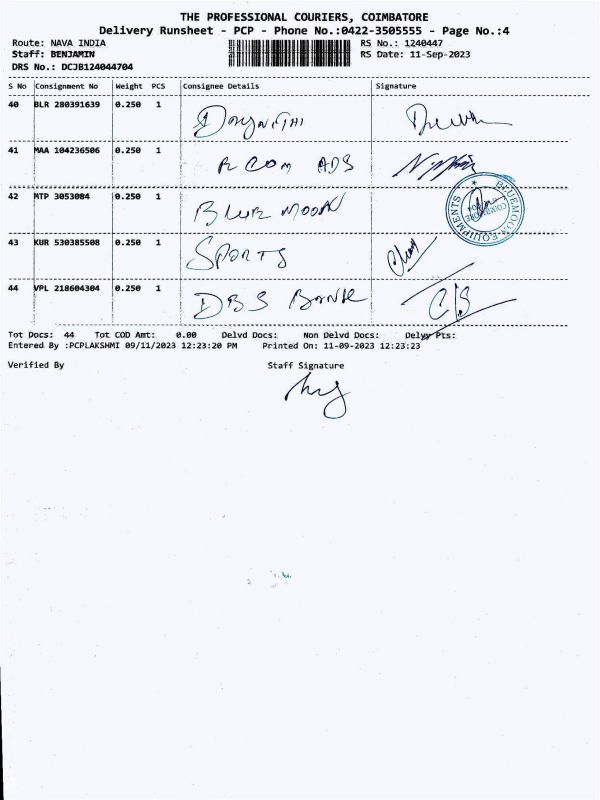 THE PROFESSIONAL COURIERS, COIMBATORE
Delivery Runsheet - PCP - Phone No.:0422-3505555 - Page No.:4
Route: NAVA INDIA RS No.: 1240447
Staff: BENJAMIN RS Date: 11-Sep-2023
DRS No.: DCJB124044704
S No Consignment No Weight PCS Consignee Details Signature
40 BLR 280391639 0.250 1
41 MAA 104236506 0.250 1 R COM ADS
42 MTP 3053084 0.250 1 BLUE MOON
BLUEMOON EQUIPMENTS
43 KUR 530385508 0.250 1 SPORTS
44 VPL 218604304 0.250 1 DBS BANK
Tot Docs: 44 Tot COD Amt: 0.00 Delvd Docs: Non Delvd Docs: Delvy Pts:
Entered By :PCPLAKSHMI 09/11/2023 12:23:20 PM Printed On: 11-09-2023 12:23:23
Verified By Staff Signature